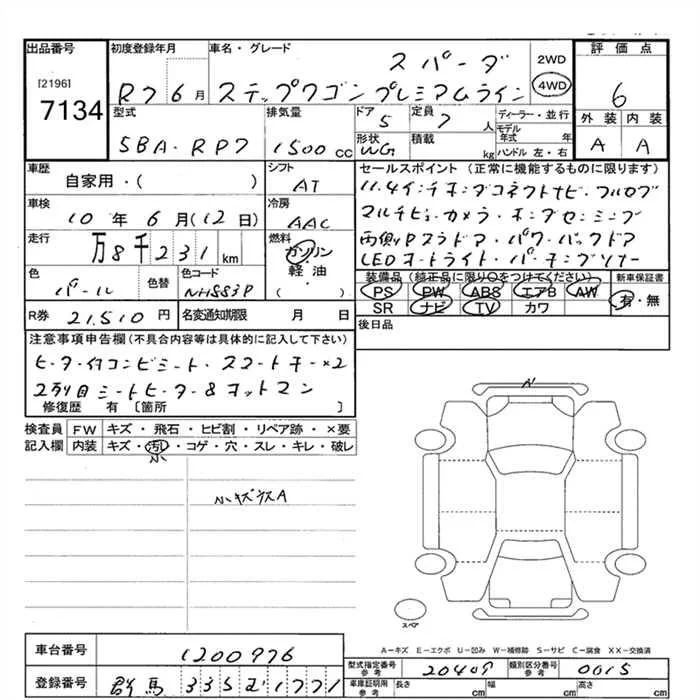 出品番号
[2196]
7134
初度登録年月
R7 6月
車名・グレード
スパーダ
ステップワゴン プレミアムライン
2WD
4WD
評価点
6
外装 内装
A A
型式
5BA-RP7
排気量
1500 CC
ドア
5
定員
7 人
形状
WG
積載
kg
ディーラー・並行
モデル年式 年
ハンドル 左・右
車歴
自家用・( )
シフト
AT
車検
10年6月(12日)
冷房
AAC
走行
万8千231 km
燃料
ガソリン・軽油・( )
色
パール
色替
色コード
NH883P
R券 21,510円
名変通知期限 月 日
セールスポイント (正常に機能するものに限ります)
11.4インチホンダコネクトナビ・フルセグ
マルチビューカメラ・ホンダセンシング
両側Pスラドア・パワーバックドア
LEDオートライト・パーキングソナー
装備品 (純正品に限り○をつけてください)
PS PW ABS エアB AW
SR ナビ TV カワ
新車保証書
有・無
後日品
注意事項申告欄 (不具合内容等は具体的に記入して下さい)
ヒーター付コンビシート・スマートキー×2
2列目シートヒーター 8オットマン
修復歴 有 〔箇所 〕
検査員記入欄
FW キズ・飛石・ヒビ割・リペア跡・×要
内装 キズ・汚レ・コゲ・穴・スレ・キレ・破レ
小
小キズラスA
スペア
A-キズ E-エクボ U-凹み W-補修跡 S-サビ C-腐食 XX-交換済
車台番号 1200976
登録番号 群馬 335 む 1771
型式指定番号 参考 20409
類別区分番号 参考 0015
車庫証明用 参考 長さ cm 幅 cm 高さ cm